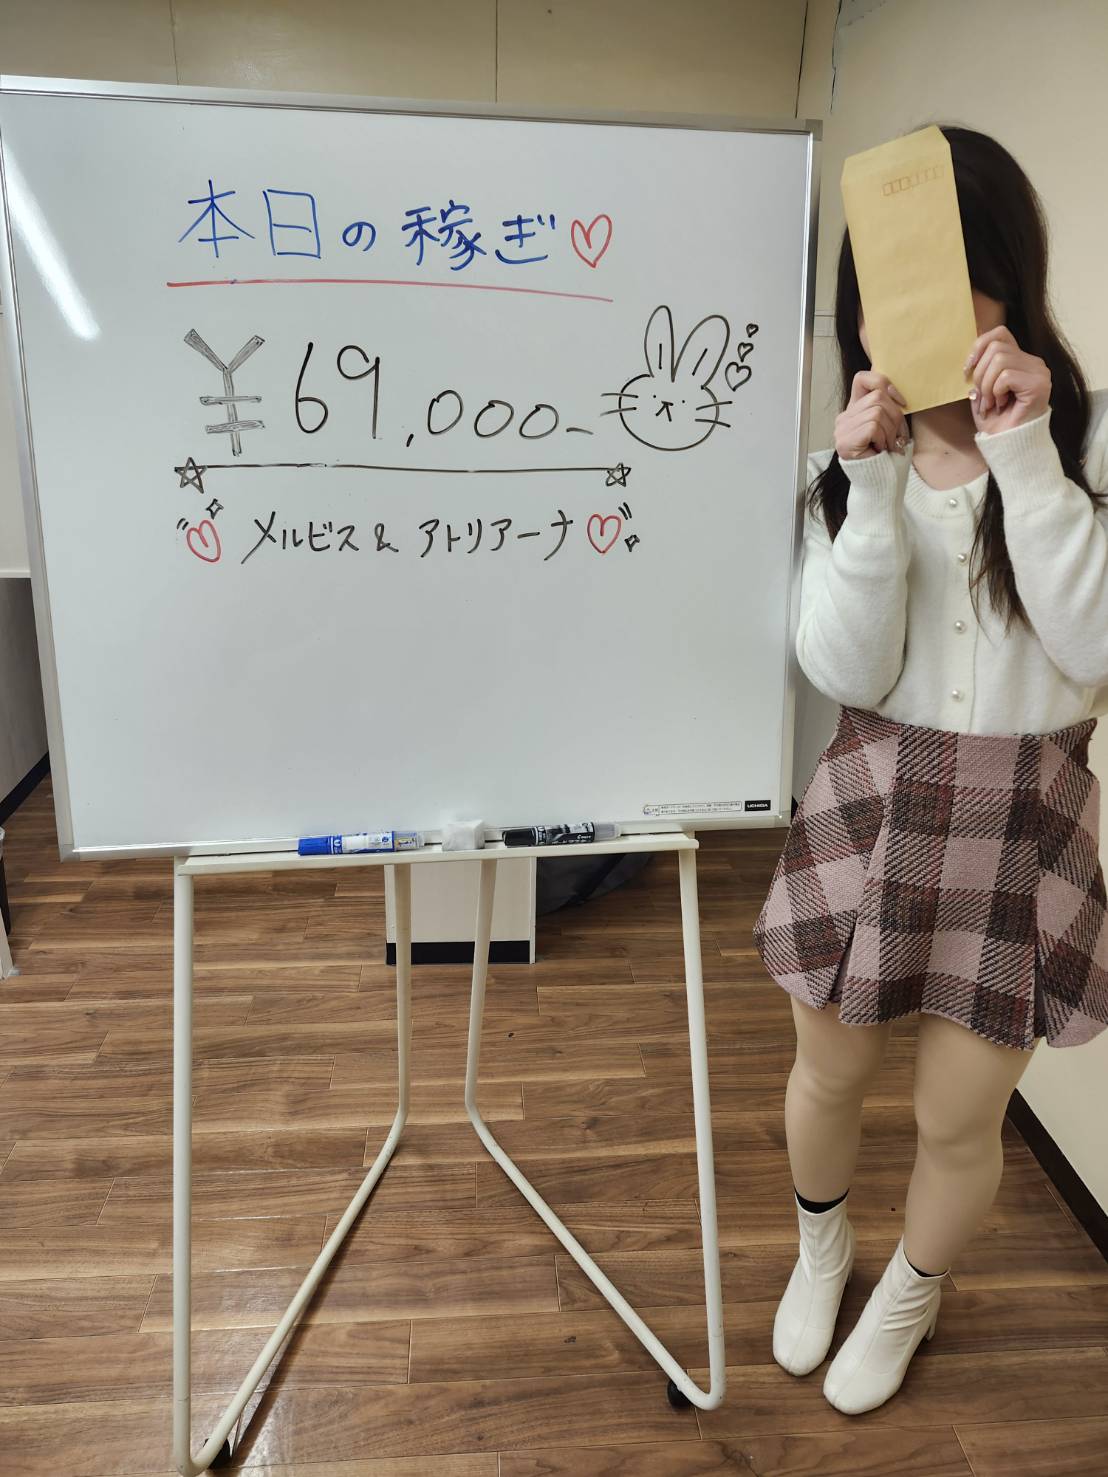 本日の稼ぎ♡
¥69,000-
♡メルビス & アトリアーナ♡
UCHIDA